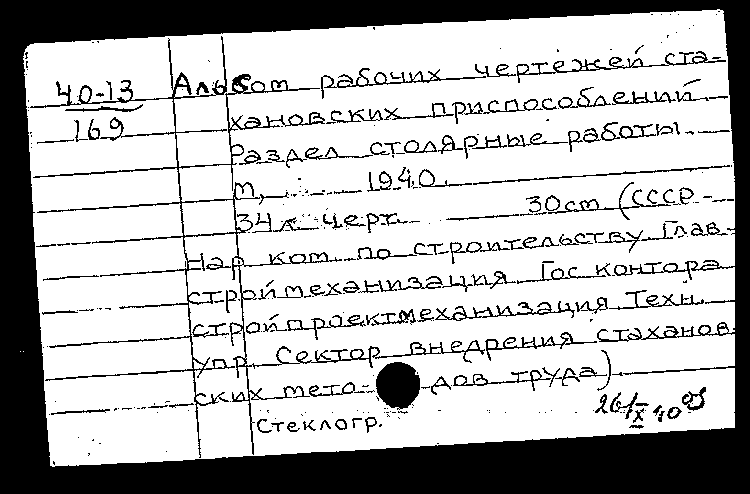 40-13
169
Альбом рабочих чертежей ста-
хановских приспособлений.
Раздел столярные работы.
М, 1940.
34 л черт. 30 cm (СССР -
Нар ком по строительству. Глав-
строймеханизация Гос контора
стройпроектмеханизация. Техн.
упр. Сектор внедрения стаханов-
ских мето- дов труда).
Стеклогр.
26/IX 40